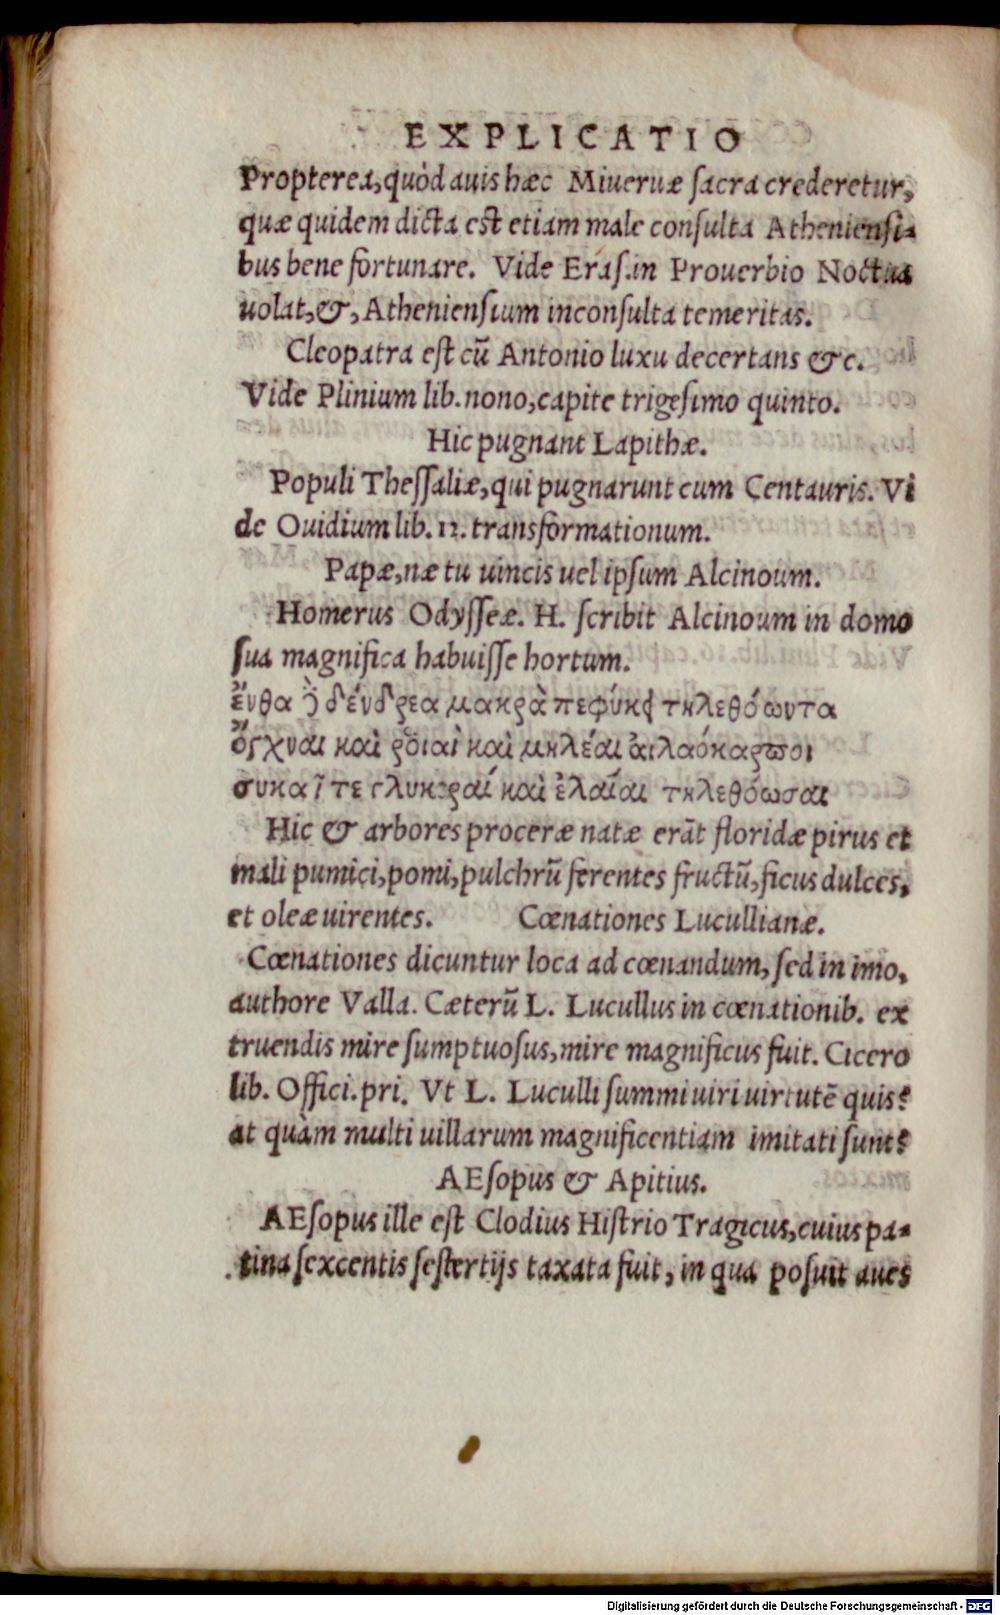 EXPLICATIO
Propterea, quòd auis hæc Miueruæ sacra crederetur,
quæ quidem dicta est etiam male consulta Atheniensi-
bus bene fortunare. Vide Eras. in Prouerbio Noctua
uolat, &, Atheniensium inconsulta temeritas.
Cleopatra est cū Antonio luxu decertans &c.
Vide Plinium lib. nono, capite trigesimo quinto.
Hic pugnant Lapithæ.
Populi Thessaliæ, qui pugnarunt cum Centauris. Vi
de Ouidium lib. 12. transformationum.
Papæ, næ tu uincis uel ipsum Alcinoum.
Homerus Odysseæ. H. scribit Alcinoum in domo
sua magnifica habuisse hortum.
ἔνθα δένδρεα μακρὰ πεφύκει τηλεθόωντα
ὄγχναι καὶ ῥοιαὶ καὶ μηλέαι ἀγλαόκαρποι
συκαῖ τε γλυκεραί καὶ ἐλαῖαι τηλεθόωσαι
Hic & arbores proceræ natæ erāt floridæ pirus et
mali pumici, pomi, pulchrū ferentes fructū, ficus dulces,
et oleæ uirentes. Cœnationes Lucullianæ.
Cœnationes dicuntur loca ad cœnandum, sed in imo,
authore Valla. Cæterū L. Lucullus in cœnationib. ex
truendis mire sumptuosus, mire magnificus fuit. Cicero
lib. Offici. pri. Vt L. Luculli summi uiri uirtutē quis?
at quàm multi uillarum magnificentiam imitati sunt?
AEsopus & Apitius.
AEsopus ille est Clodius Histrio Tragicus, cuius pa-
tina sexcentis sestertijs taxata fuit, in qua posuit aues
Digitalisierung gefördert durch die Deutsche Forschungsgemeinschaft - DFG